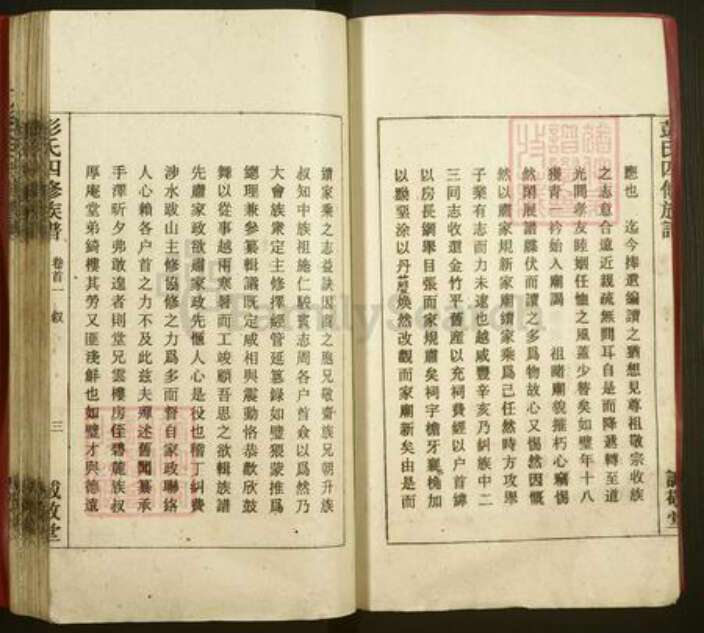 應也　迄今捧遺編讀之猶想見尊祖敬宗收族
之志意合遠近親疏無間耳自是而降遞轉至道
光間孝友睦婣任恤之風蓋少替矣如璧年十八
獲青一衿始入廟謁　祖睹廟貌摧朽心竊惕
然閑展譜牒伏而讀之多爲物故心又惕然因慨
然以肅家規新家廟續家乘爲己任然時方攻舉
子業有志而力未逮也越咸豐辛亥乃糾族中二
三同志收還金竹平舊產以充祠費經以戶首緯
以房長綱舉目張而家規肅矣祠宇檐牙襄桷加
以黝堊塗以丹雘煥然改觀而家廟新矣由是而
續家乘之志益訣因商之胞兄敬齋族兄朝升族
叔知中族祖施仁駿賓志周各户首僉以爲然乃
大會族衆定主修擇經管延篡錄如璧猥蒙推爲
總理兼參纂輯議既定咸相與震動恪恭歡欣鼓
舞以從事越兩寒暑而工竣顧吾思之欲輯族譜
先肅家政欲肅家政先愜人心是役也稽丁糾費
涉水跋山主修協修之力爲多而督自家政聯絡
人心賴各户首之力不及此兹夫殫述舊聞纂承
手澤昕夕弗敢遑者則堂兄雲樓房侄碧麓族叔
厚庵堂弟綺樓其勞又匪淺鮮也如璧才與德遠
彭氏四修族譜
卷首一　叙
三